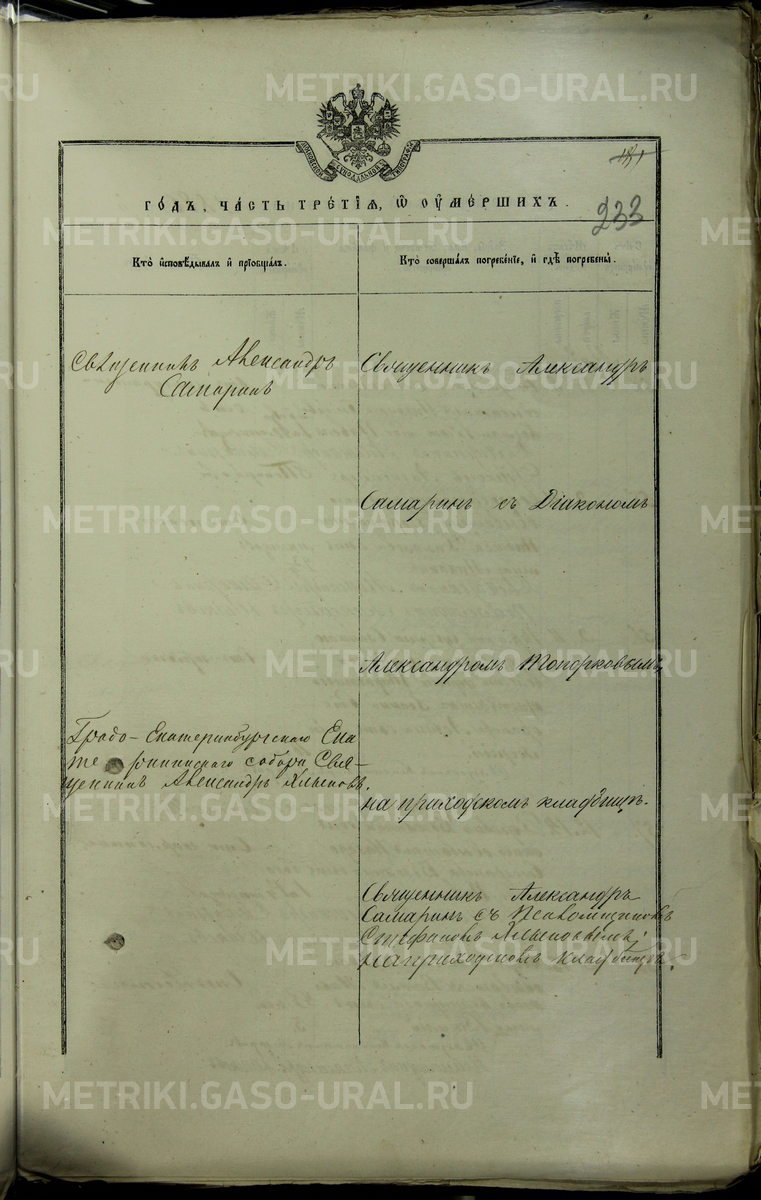 181
233
го́дъ, ча́сть тре́тїѧ, ѡ҆ ᲂу҆ме́ршихъ.
Кто̀ и҆сповѣ́дывалъ и҆ прїобща́лъ.
Кто̀ соверша́лъ погребе́нїе, и҆ гдѣ̀ погребены̀.
Священникъ Александръ
Самаринъ
Священникъ Александръ
Самаринъ съ Діакономъ
Александромъ Топорковымъ,
на приходскомъ кладбищѣ.
Градо-Екатеринбургскаго Ека
терининскаго собора Свя-
щенникъ Александръ Хлыновъ.
Священникъ Александръ
Самаринъ съ Псаломщикомъ
Стефаномъ Хлыновымъ;
на приходскомъ кладбищѣ.
METRIKI.GASO-URAL.RU